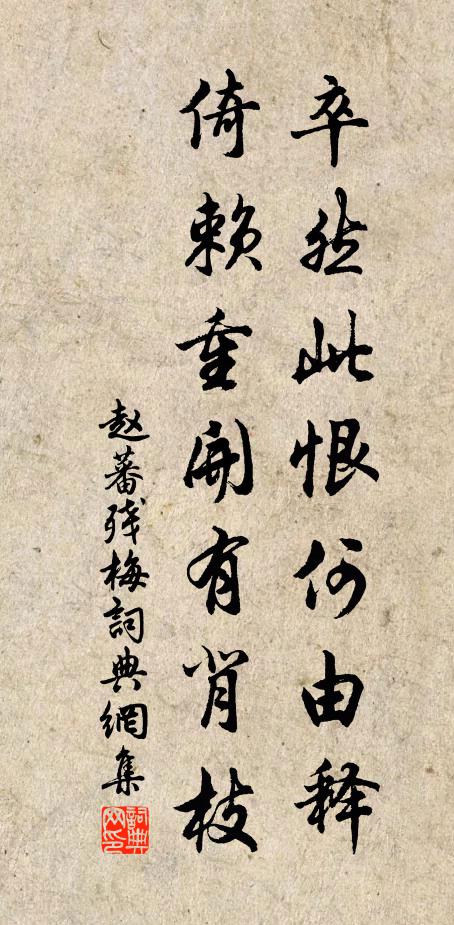 卒然此恨何由释
倚赖重開有背枝
赵蕃残梅詞典網集
詞典网印